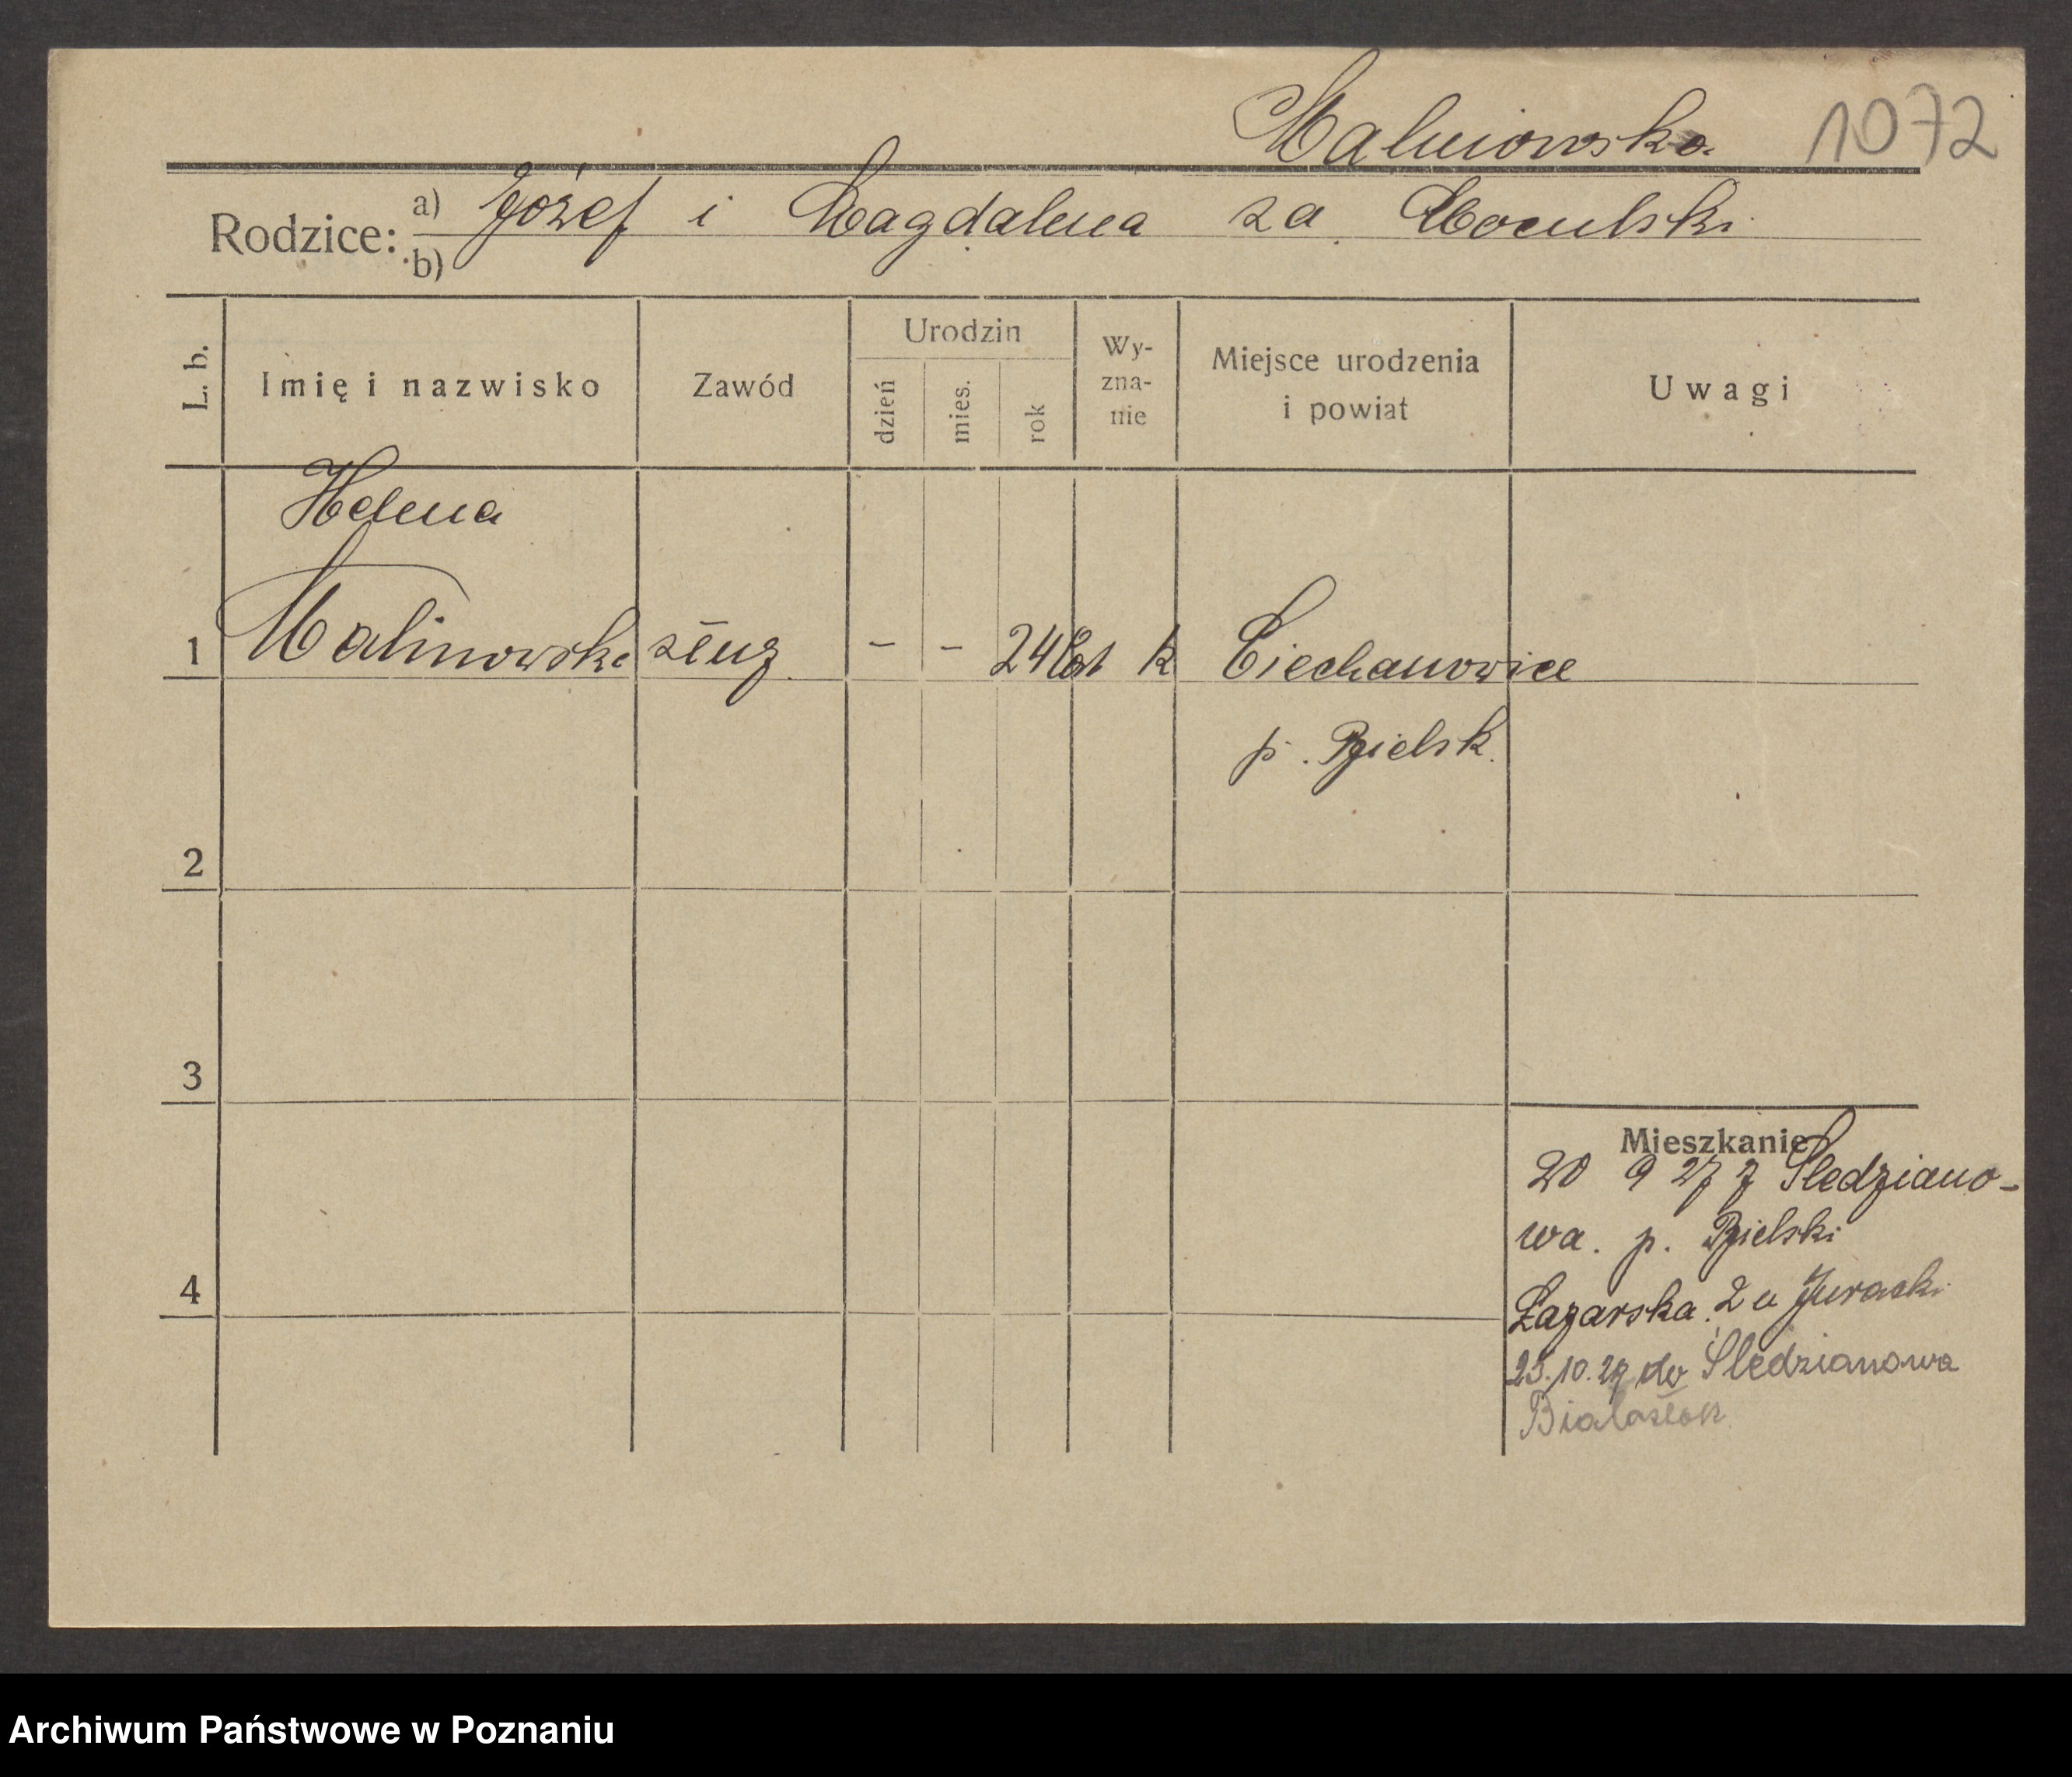 Malinowska 1072
Rodzice: a) Józef i Magdalena za Moculski
b)
L. b. Imię i nazwisko Zawód Urodzin dzień mies. rok Wy-zna-nie Miejsce urodzenia i powiat Uwagi
Helena
1 Malinowska służ - - 24 lat k Ciechanowice
p. Bielsk.
2
3
Mieszkanie
20 9 27 z Śledziano-
wa. p. Bielski
4 Łazarska 2a Juracki
25.10.27 do Śledzianowa
Białastok
Archiwum Państwowe w Poznaniu